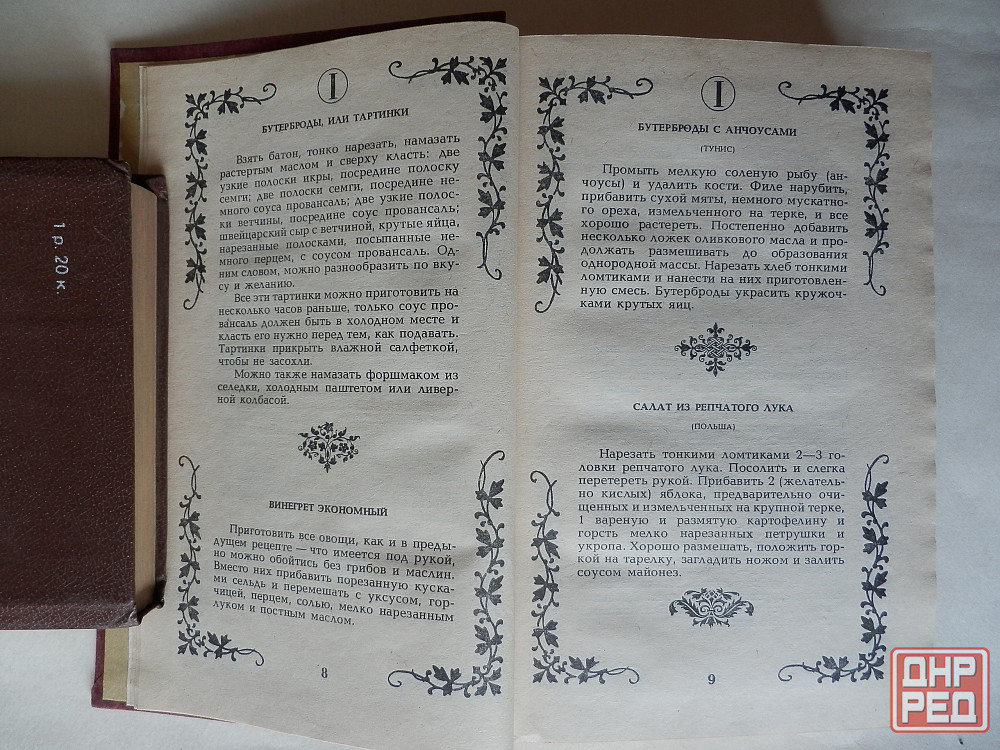 1 р. 20 к.
I
БУТЕРБРОДЫ, ИЛИ ТАРТИНКИ
Взять батон, тонко нарезать, намазать
растертым маслом и сверху класть: две
узкие полоски икры, посредине полоску
семги; две полоски семги, посредине не-
много соуса провансаль; две узкие полос-
ки ветчины, посредине соус провансаль;
швейцарский сыр с ветчиной, крутые яйца,
нарезанные полосками, посыпанные не-
много перцем, с соусом провансаль. Од-
ним словом, можно разнообразить по вку-
су и желанию.
Все эти тартинки можно приготовить на
несколько часов раньше, только соус про-
вансаль должен быть в холодном месте и
класть его нужно перед тем, как подавать.
Тартинки прикрыть влажной салфеткой,
чтобы не засохли.
Можно также намазать форшмаком из
селедки, холодным паштетом или ливер-
ной колбасой.
ВИНЕГРЕТ ЭКОНОМНЫЙ
Приготовить все овощи, как и в преды-
дущем рецепте — что имеется под рукой,
но можно обойтись без грибов и маслин.
Вместо них прибавить порезанную куска-
ми сельдь и перемешать с уксусом, гор-
чицей, перцем, солью, мелко нарезанным
луком и постным маслом.
8
I
БУТЕРБРОДЫ С АНЧОУСАМИ
(ТУНИС)
Промыть мелкую соленую рыбу (ан-
чоусы) и удалить кости. Филе нарубить,
прибавить сухой мяты, немного мускатно-
го ореха, измельченного на терке, и все
хорошо растереть. Постепенно добавить
несколько ложек оливкового масла и про-
должать размешивать до образования
однородной массы. Нарезать хлеб тонкими
ломтиками и нанести на них приготовлен-
ную смесь. Бутерброды украсить кружоч-
ками крутых яиц.
САЛАТ ИЗ РЕПЧАТОГО ЛУКА
(ПОЛЬША)
Нарезать тонкими ломтиками 2—3 го-
ловки репчатого лука. Посолить и слегка
перетереть рукой. Прибавить 2 (желатель-
но кислых) яблока, предварительно очи-
щенных и измельченных на крупной терке,
1 вареную и размятую картофелину и
горсть мелко нарезанных петрушки и
укропа. Хорошо размешать, положить гор-
кой на тарелку, загладить ножом и залить
соусом майонез.
9
ДНР
РЕД